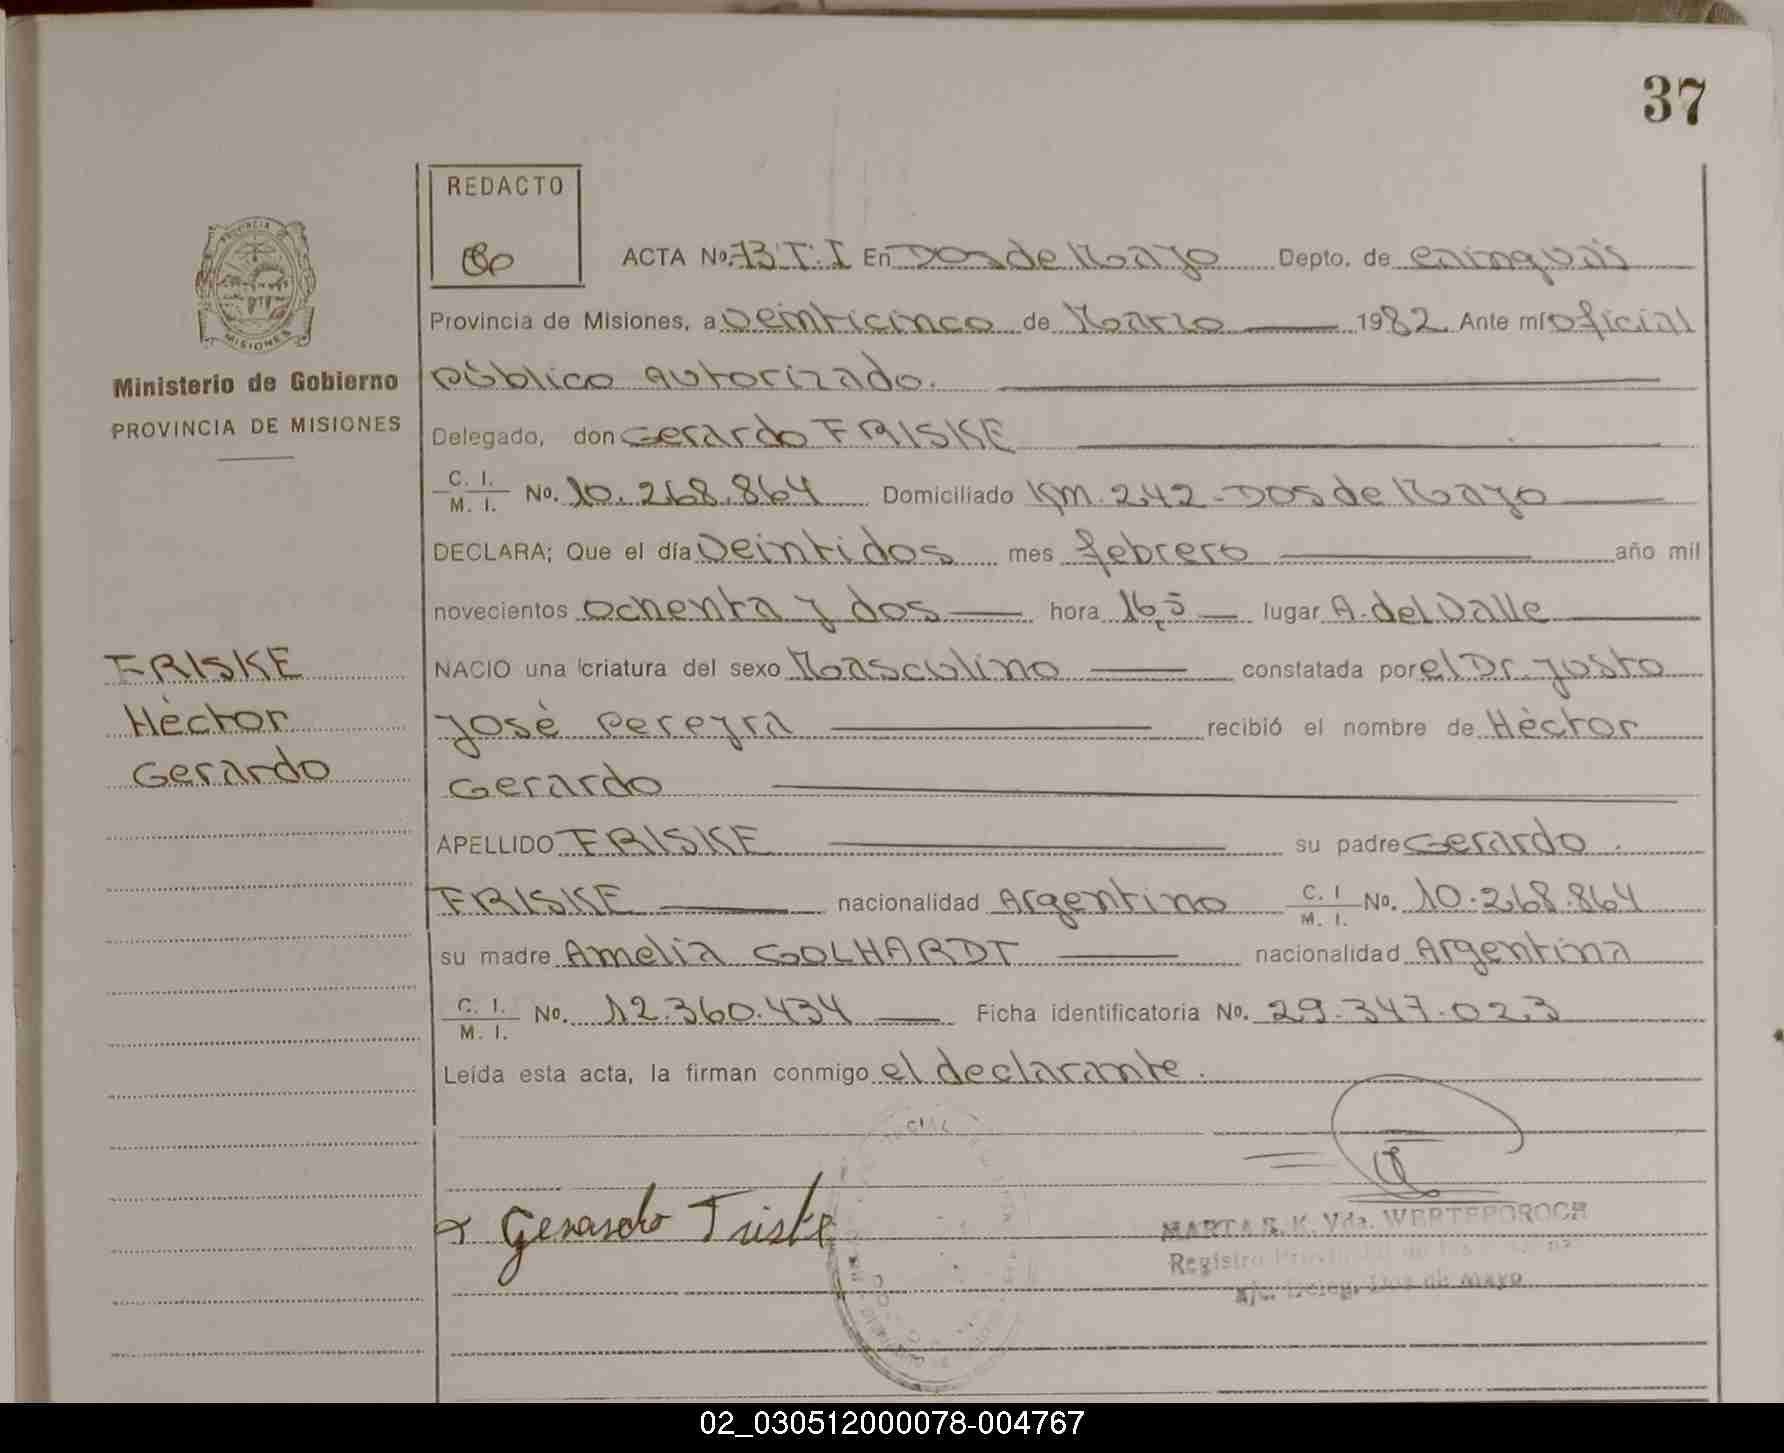 37
REDACTO
ACTA No. 73 T: I En Dos de Mayo Depto. de Cainguás
Provincia de Misiones, a veinticinco de Marzo 1982 Ante mí oficial
público autorizado.
Ministerio de Gobierno
PROVINCIA DE MISIONES
Delegado, don Gerardo FRISKE
C. I.
M. I. No. 10.268.864 Domiciliado Km. 242 - Dos de Mayo
DECLARA; Que el día veintidos mes febrero año mil
novecientos ochenta y dos hora 16,5 lugar A. del Valle
FRISKE
Héctor
Gerardo
NACIO una criatura del sexo Masculino constatada por el Dr. Justo
José Pereyra recibió el nombre de Héctor
Gerardo
APELLIDO FRISKE su padre Gerardo
FRISKE nacionalidad Argentino C. I. M. I. No. 10.268.864
su madre Amelia GOLHARDT nacionalidad Argentina
C. I.
M. I. No. 12.360.434 Ficha identificatoria No. 29.347.023
Leída esta acta, la firman conmigo el declarante.
Gerardo Friske
MARTA R. K. Vda. WERTEPOROCH
Registro
Deleg. Dos de Mayo
02_030512000078-004767